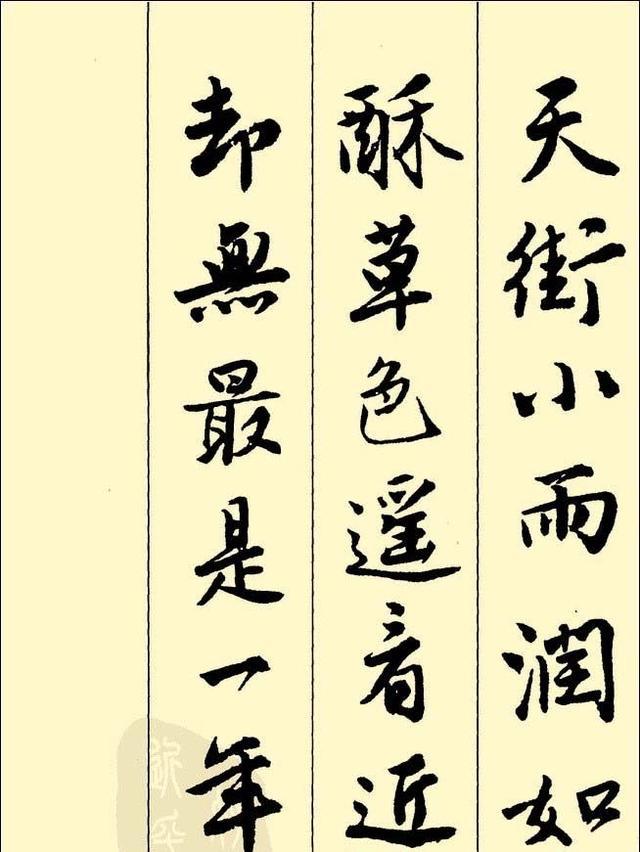 天街小雨潤如
酥草色遥看近
却無最是一年